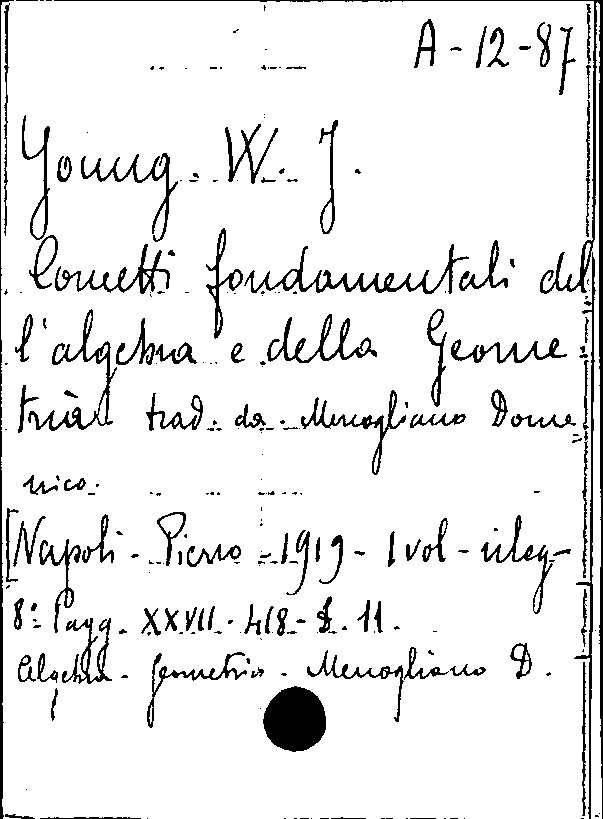 A-12-87
Young. W. J.
Concetti fondamentali del
l'algebra e della Geome-
tria trad. da Mercogliano Dome
nico.
[Napoli - Pierro - 1919 - 1 vol - rileg -
8° Pagg. XXVII - 418 - L. 11.
Algebra - geometria - Mercogliano D.